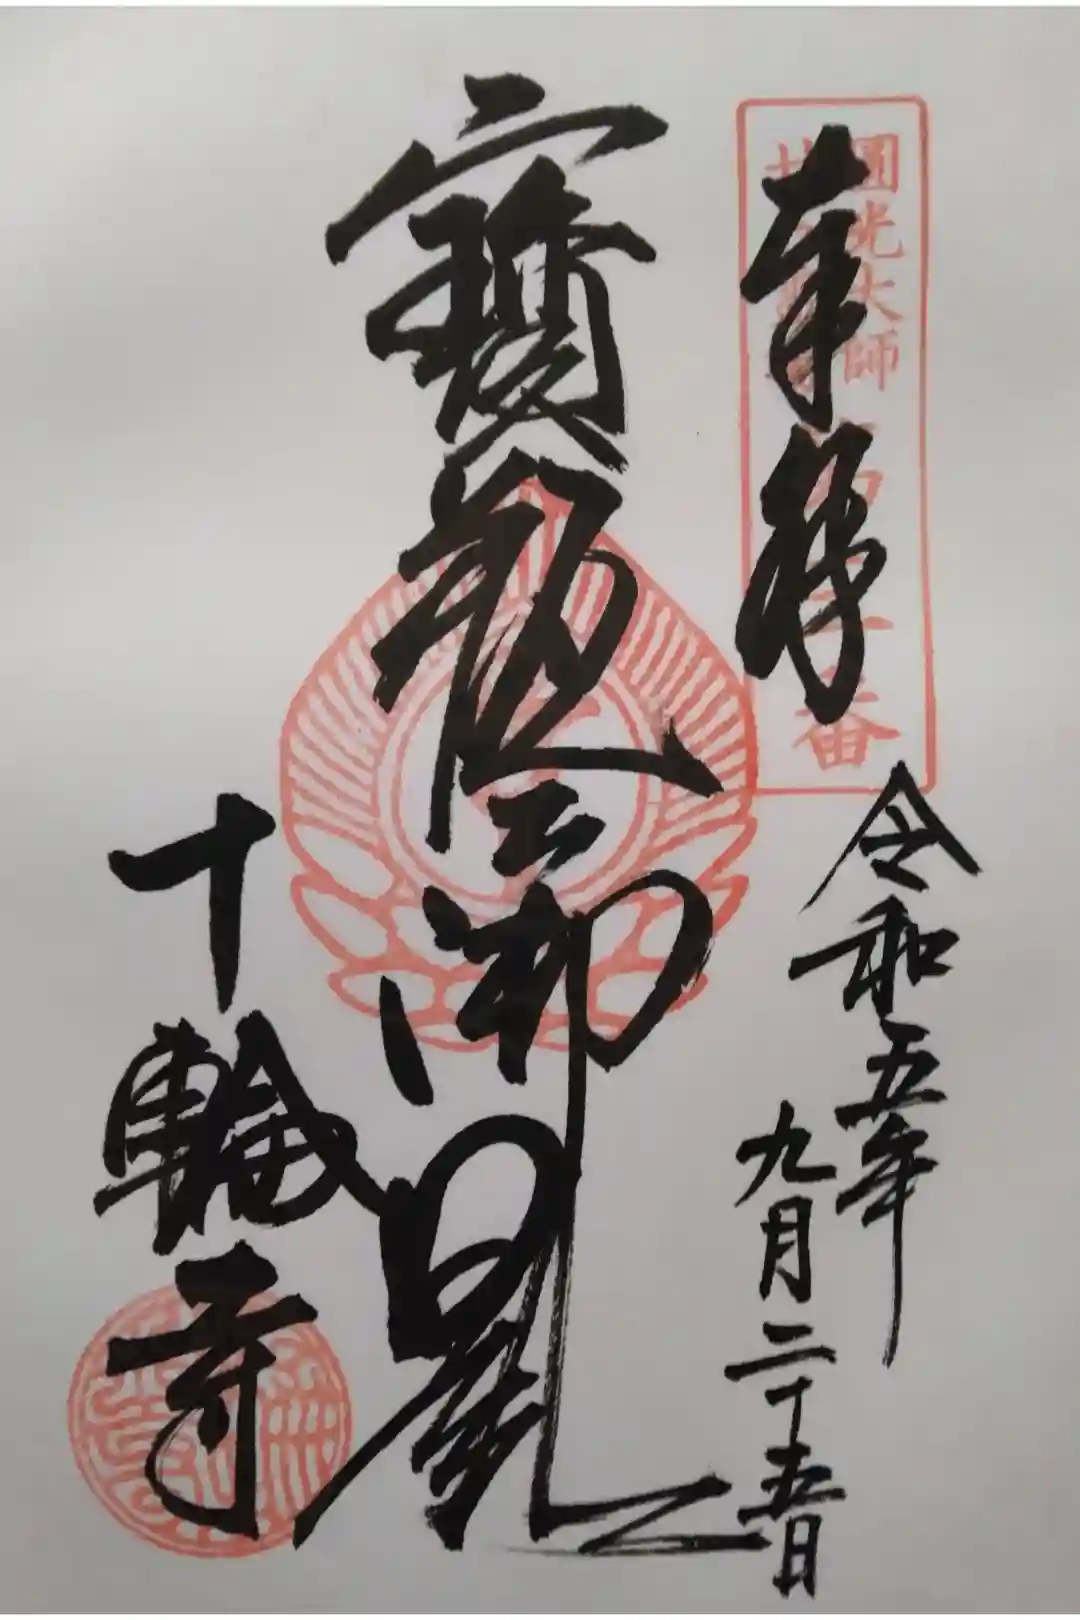 圓光大師
奉拝
令和五年
九月二十五日
寶瓶御影
十輪寺